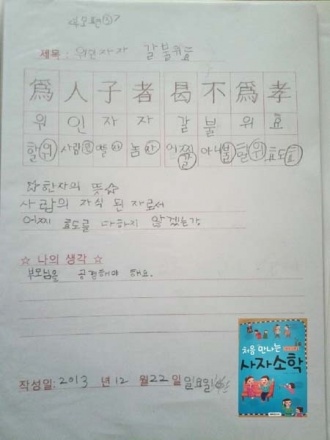 제목 : 위인자자 갈불위효
爲 人 子 者 曷 不 爲 孝
위 인 자 자 갈 불 위 효
할 위 사람 인 자 놈 자 어찌 갈 아니 불 할 위 효도 효
☆한자의 뜻☆
사람의 자식 된 자로서
어찌 효도를 다하지 않겠는가
☆ 나의 생각 ☆
부모님을 공경해야 해요.
처음 만나는
사자소학
작성일: 2013 년 12 월 22 일 일요일